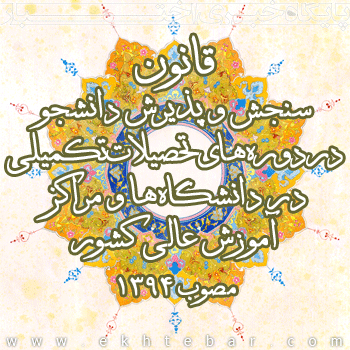 قانون
سنجش و پذیرش دانشجو
در دوره‌های تحصیلات تکمیلی
در دانشگاه‌ها و مراکز
آموزش عالی کشور
مصوب ۱۳۹۴
www.ekhtebar.com